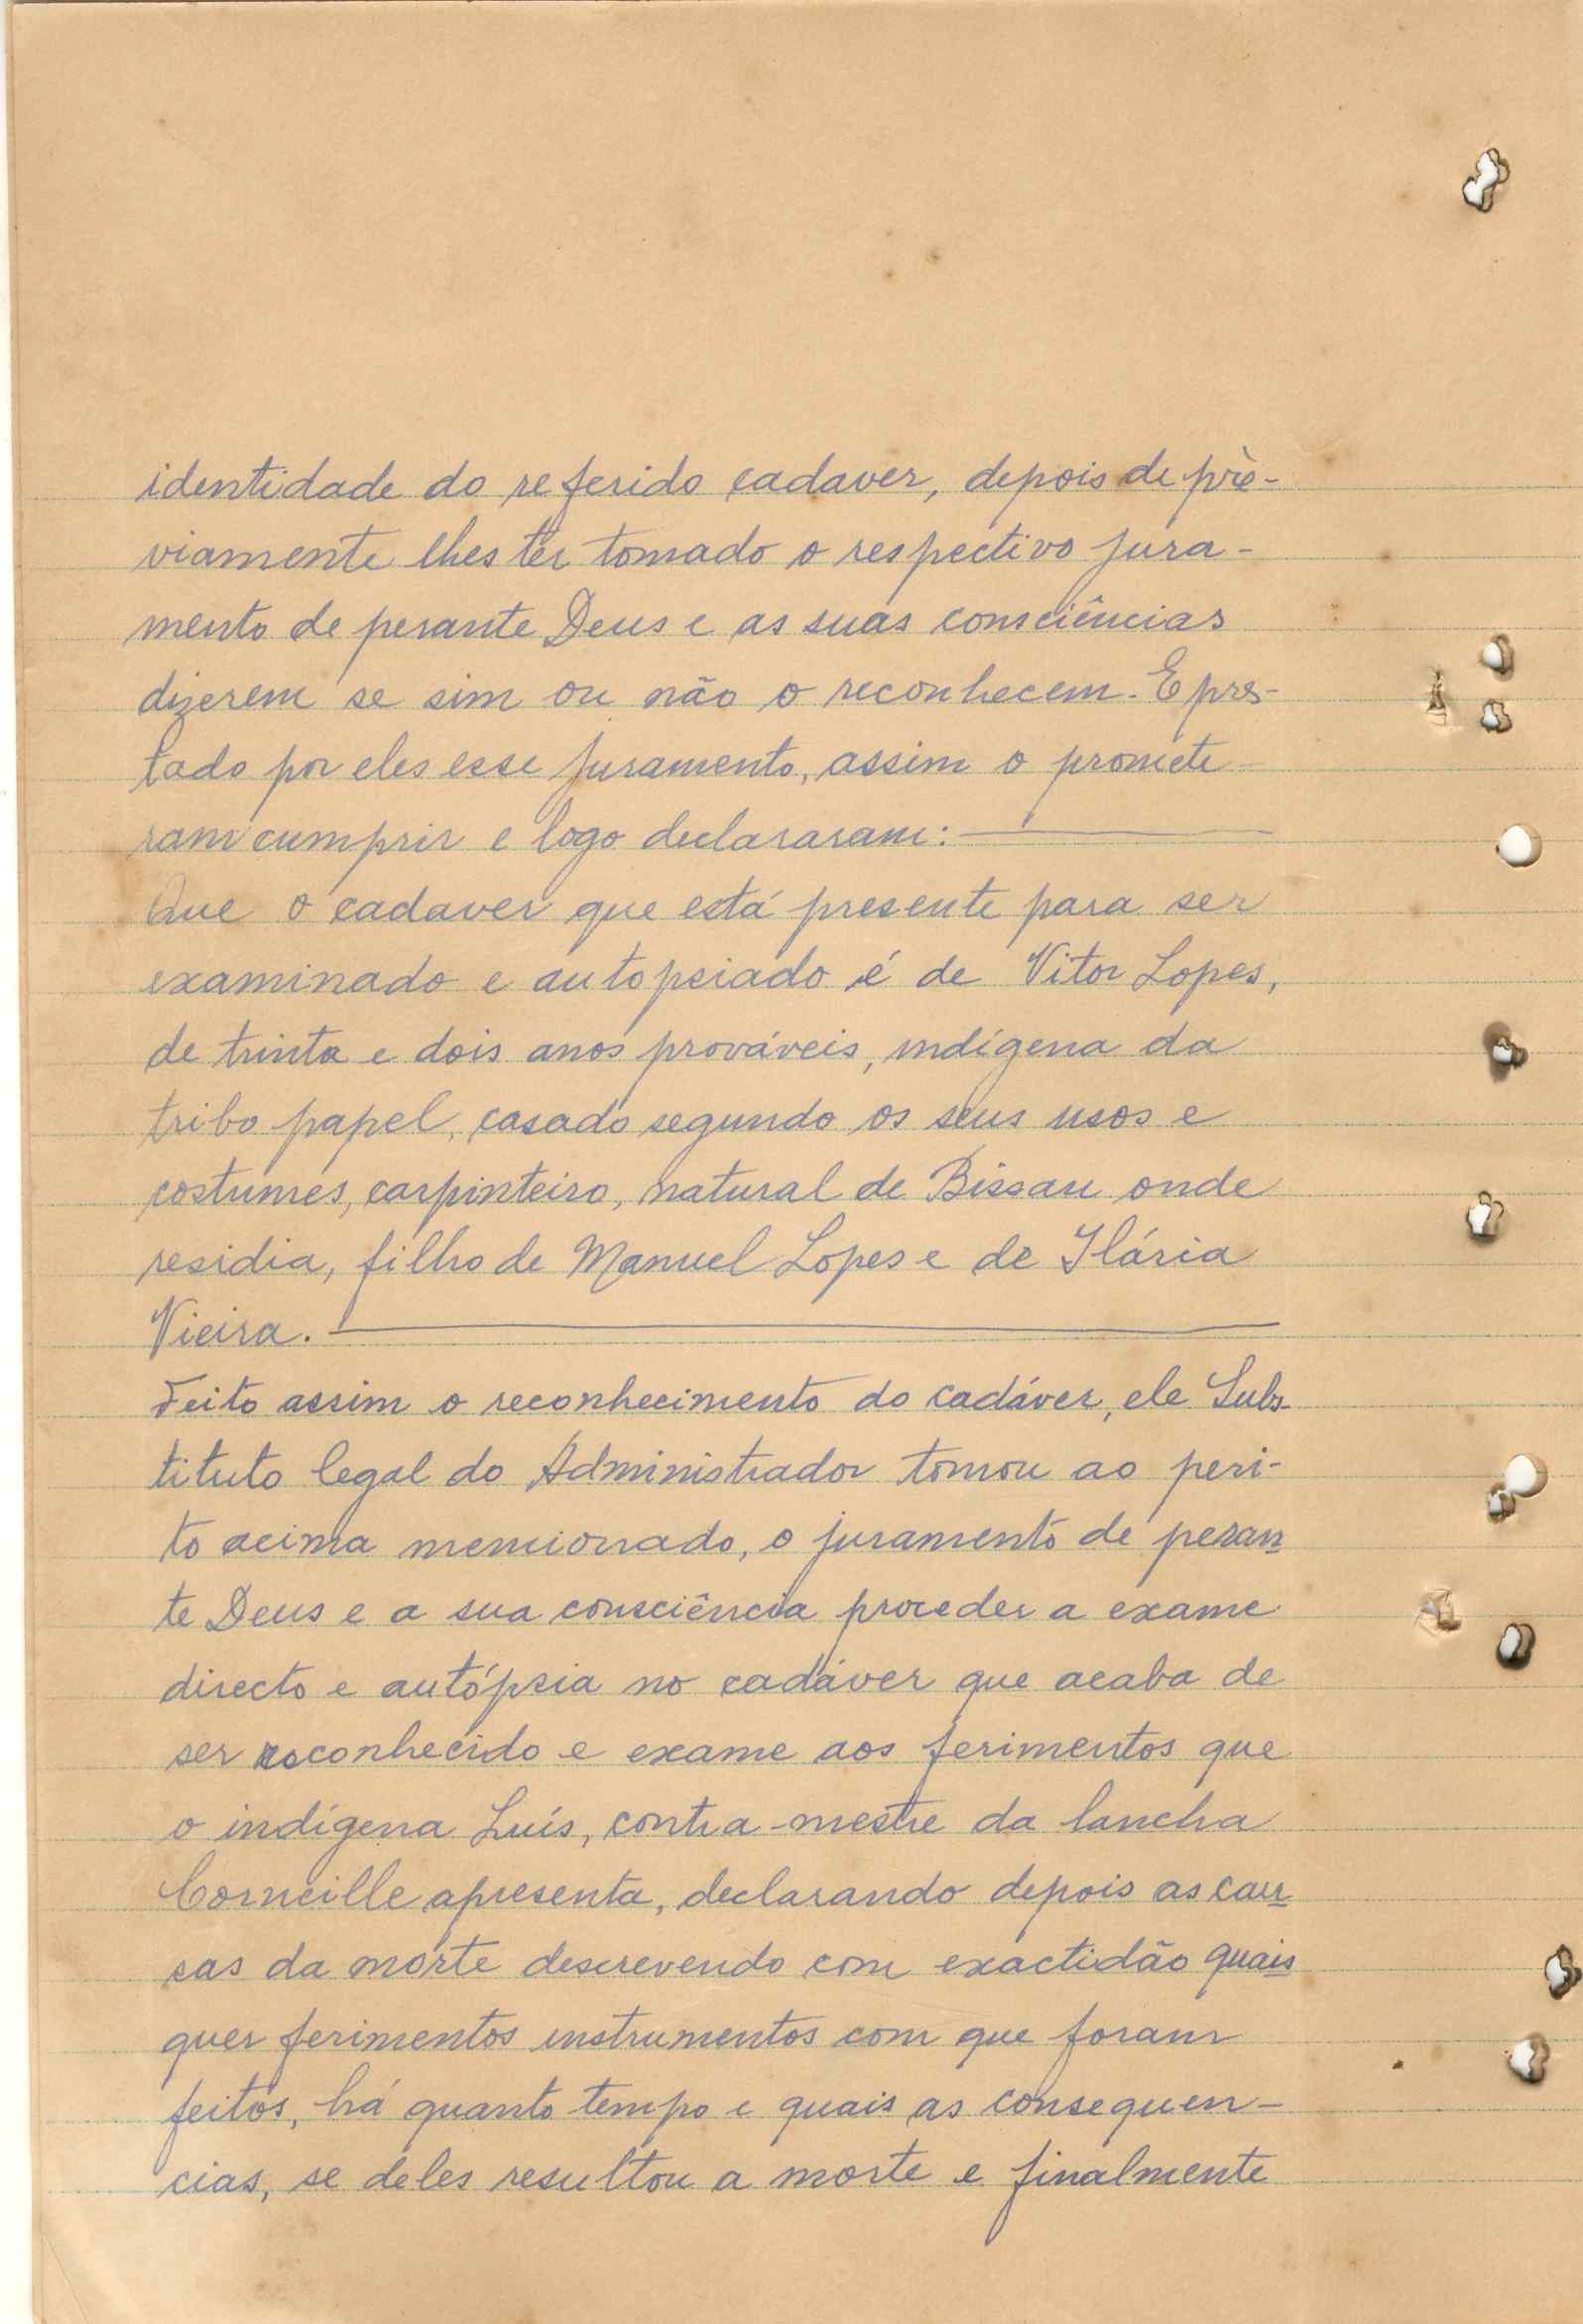 identidade do referido cadaver, depois de prè-
viamente lhes ter tomado o respectivo jura-
mento de perante Deus e as suas consciências
dizerem se sim ou não o reconhecem. E pres-
tado por eles esse juramento, assim o promete-
ram cumprir e logo declararam:
Que o cadaver que está presente para ser
examinado e autopsiado é de Vitor Lopes,
de trinta e dois anos prováveis, indígena da
tribo papel, casado segundo os seus usos e
costumes, carpinteiro, natural de Bissau onde
residia, filho de Manuel Lopes e de Ilária
Vieira.
Feito assim o reconhecimento do cadáver, ele Subs-
tituto legal do Administrador tomou ao peri-
to acima mencionado, o juramento de peran
te Deus e a sua consciência proceder a exame
directo e autópsia no cadáver que acaba de
ser reconhecido e exame aos ferimentos que
o indígena Luís, contra-mestre da lancha
Corneille apresenta, declarando depois as cau
sas da morte descrevendo com exactidão quais
quer ferimentos instrumentos com que foram
feitos, há quanto tempo e quais as consequen-
cias, se deles resultou a morte e finalmente